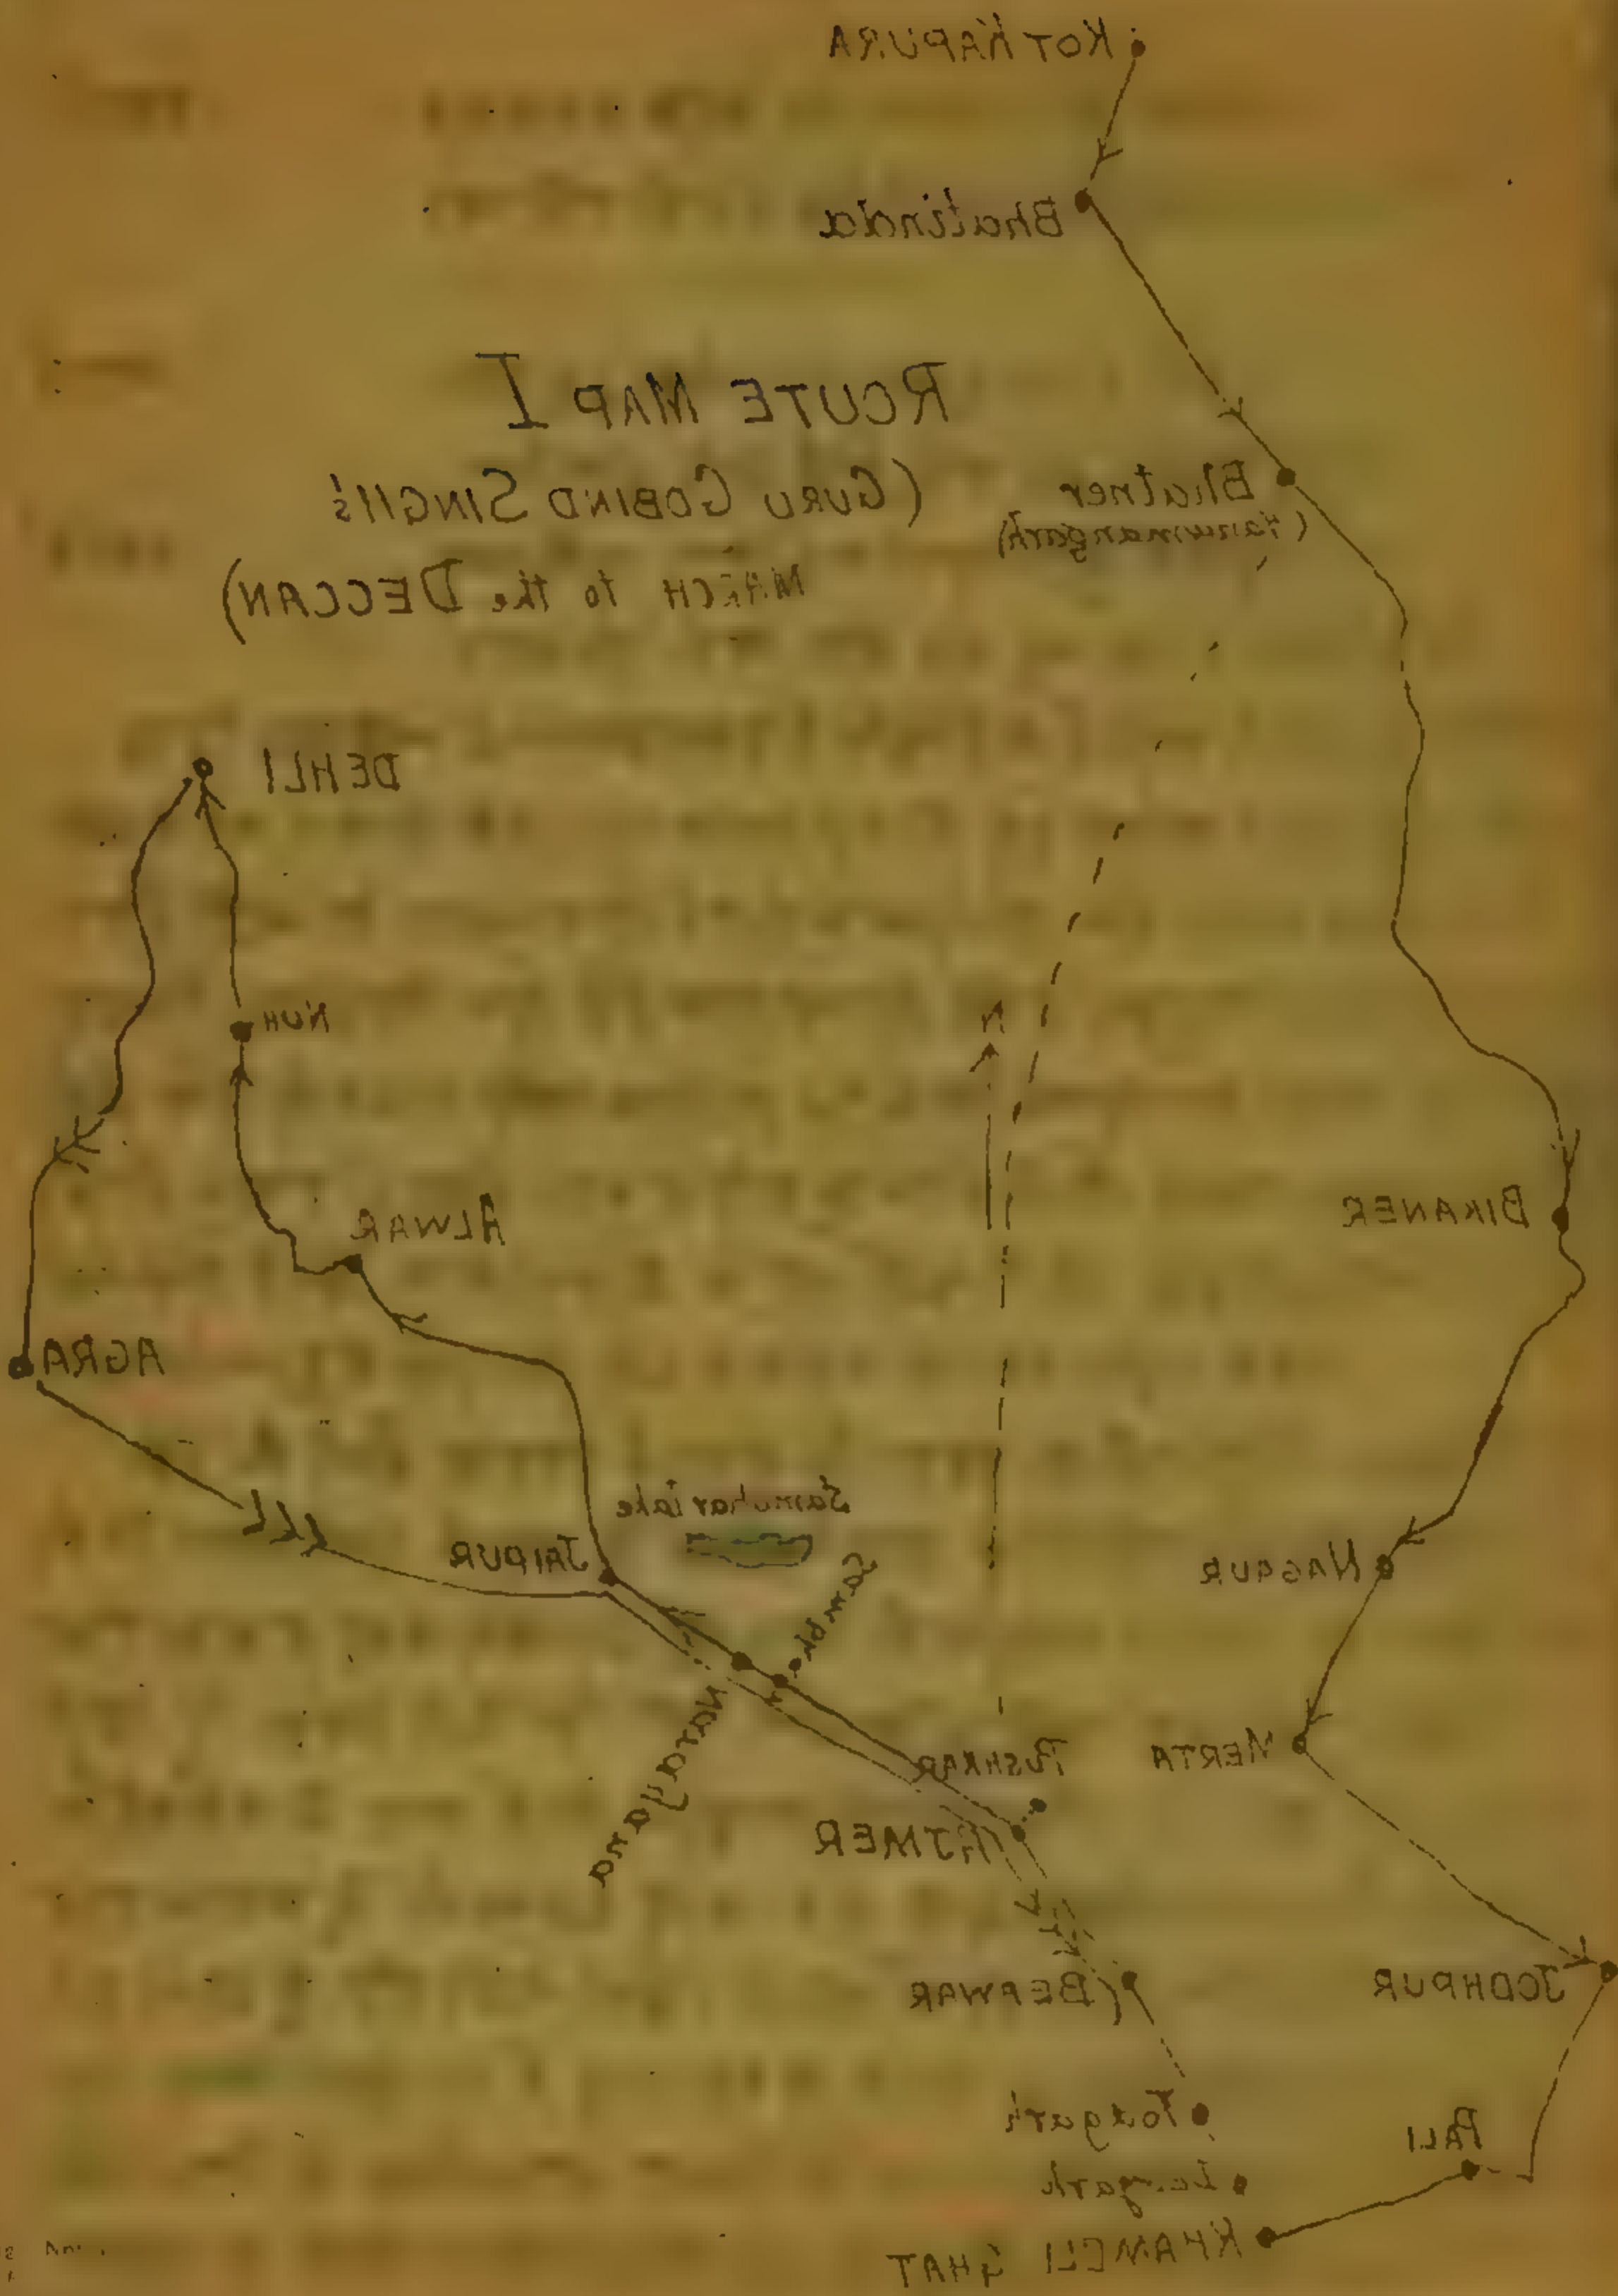 KOT KAPURA
Bhatinda
ROUTE MAP I
(GURU GOBIND SINGH's
MARCH to the DECCAN)
Bhatner
(Hanumangarh)
DEHLI
NUH
N
ALWAR
BIKANER
AGRA
Sambhar lake
JAIPUR
NAGAUR
Narayana
PUSHKAR
MERTA
AJMER
BEAWAR
JODHPUR
Todgarh
PALI
KHAMELI GHAT